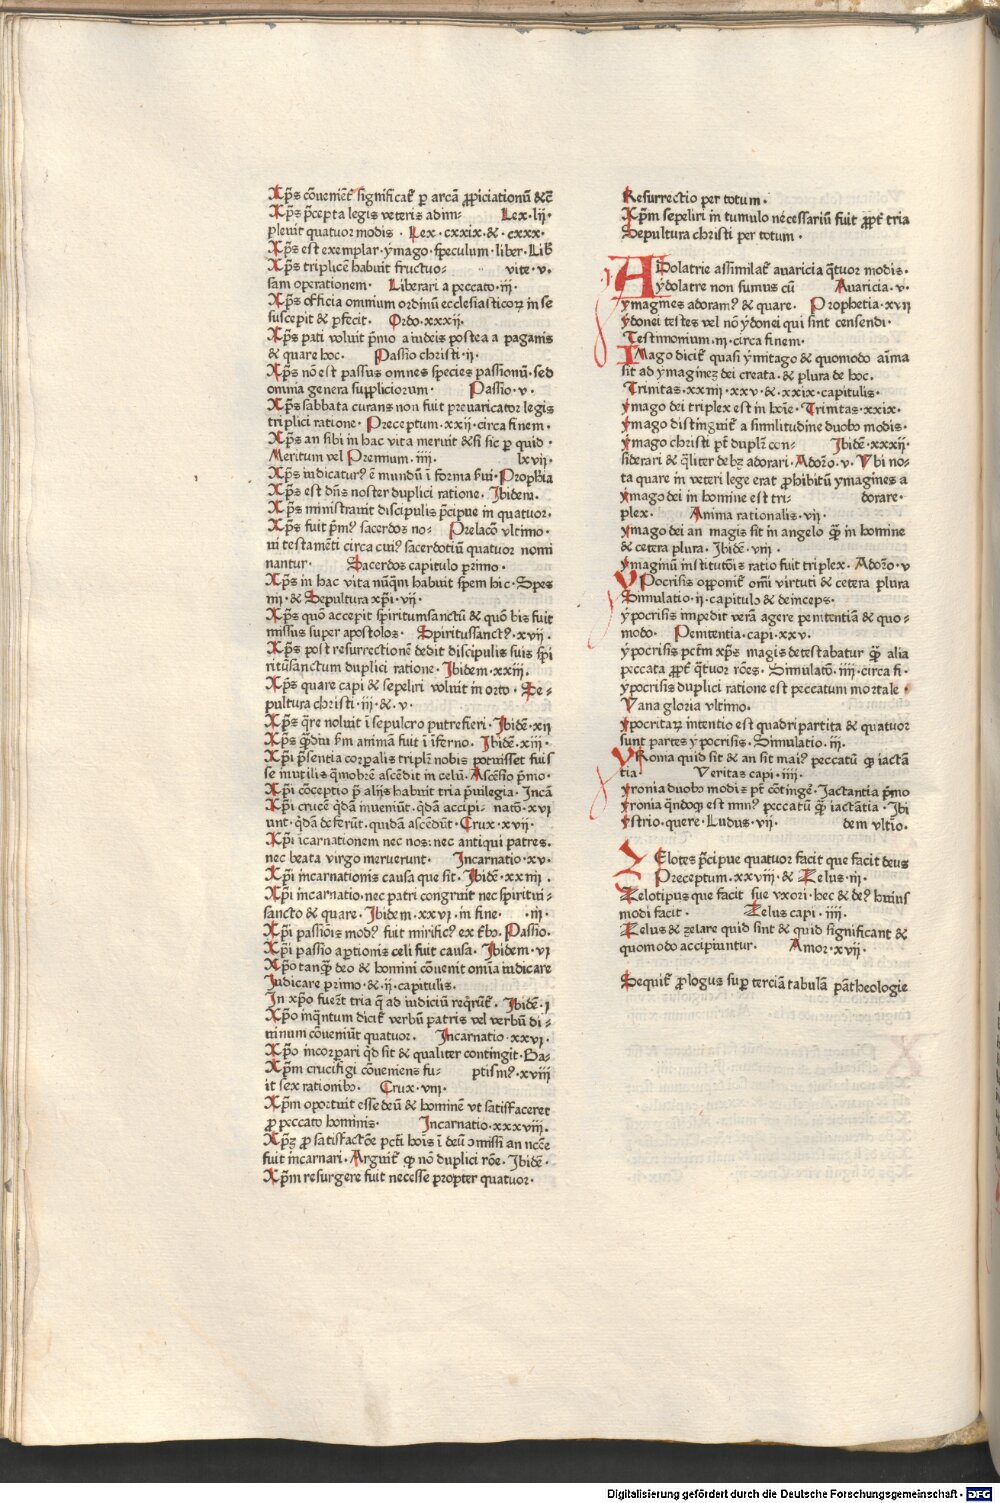 Xp̄s cōueniēt͛ significat͛ p arcā ꝓpiciationū &c̄
Xp̄s p̄cepta legis veteris adim⸗ Lex·lij·
pleuit quatuor modis · Lex·cxxix·&·cxxx·
Xp̄s est exemplar·ymago·speculum·liber·Lib̄
Xp̄s triplicē habuit fructuo⸗ vite·v·
sam operationem· Liberari a peccato·iij·
Xp̄s officia omnium ordinū ecclesiasticoꝝ in se
suscepit & pfecit· Ordo·xxxij·
Xp̄s pati voluit p̄mo a iudeis postea a paganis
& quare hoc· Passio christi·ij·
Xp̄s nō est passus omnes species passionū·sed
omnia genera suppliciorum· Passio·v·
Xp̄s sabbata curans non fuit preuaricator legis
triplici ratione·Preceptum·xxij·circa finem·
Xp̄s an sibi in hac vita meruit &si sic p quid·
Meritum vel Premium·iiij· lxvij·
Xp̄s iudicatur? ē mundū ī forma hūi·Prophīa
Xp̄s est dn̄s noster duplici ratione· Ibidem·
Xp̄s ministrauit discipulis p̄cipue in quatuor·
Xp̄s fuit p̄m? sacerdos no⸗ Prelacō vltimo·
ui testamēti circa cui? sacerdotiū quatuor nomi
nantur· Sacerdos capitulo primo·
Xp̄s in hac vita nūq̄m habuit spem hic·Spes
iiij·& Sepultura xp̄i·vij·
Xp̄s quō accepit spiritumsanctū & quō bis fuit
missus super apostolos· Spiritussanct?·xvij·
Xp̄s post resurrectionē dedit discipulis suis spi
ritūsanctum duplici ratione·Ibidem·xxiij·
Xp̄s quare capi & sepeliri voluit in orto·Se⸗
pultura christi·iij·&·v·
Xp̄s q̄re noluit ī sepulcro putrefieri·Ibidē·xij
Xp̄s q̄diu sm̄ animā fuit ī īferno· Ibidē·xiij·
Xp̄i p̄sentia corpalis triplr̄ nobis potuisset fuis
se inutilis q̄mobrē ascēdit in celū·Ascēsio p̄mo·
Xp̄i cōceptio p̄ alijs habuit tria p̄uilegia·Incā
Xp̄i crucē q̄dā inueniūt·q̄dā accipi⸗ natō·xvi
unt·q̄dā deferūt·quidā ascēdūt·Crux·xvij·
Xp̄i īcarnationem nec nos:nec antiqui patres·
nec beata virgo meruerunt· Incarnatio·xv·
Xp̄i incarnationis causa que sit·Ibidē·xxiiij·
Xp̄i incarnatio·nec patri congruit nec spiritui⸗
sancto & quare·Ibidem·xxvi·in fine· ·iij·
Xp̄i passiōis mod? fuit mirific? ex tb?·Passio·
Xp̄i passio aptionis celi fuit causa· Ibidem·vi
Xp̄o tanq̄ deo & homini cōuenit om̄ia iudicare
Iudicare primo·&·ij·capitulis·
In xp̄o fuer̄t tria q̄ ad iudiciū req̄rūt͛· Ibidē·i
Xp̄o inq̄ntum dicit͛ verbū patris vel verbū di⸗
uinum cōueniūt quatuor· Incarnatio·xxvi·
Xp̄o incorpari qd̄ sit & qualiter contingit·Ba⸗
Xp̄m crucifigi cōueniens fu⸗ ptism?·xviij
it sex rationib?· Crux·viij·
Xp̄m oportuit esse deū & hominē vt satisfaceret
ꝓ peccato hominis· Incarnatio·xxxviij·
Xp̄ꝫ ꝓ satisfactōe pcti hoīs ī deū ɔmissi an ncc̄e
fuit incarnari·Arguit͛ ꝙ nō duplici rōe·Ibidē·
Xp̄m resurgere fuit necesse propter quatuor·
Resurrectio per totum·
Xp̄m sepeliri in tumulo necessariū fuit ꝓpt͛ tria
Sepultura christi per totum·
YDolatrie assimilat͛ auaricia q̄tuor modis·
ydolatre non sumus cū Auaricia·v·
ymagines adoram? & quare· Prophetia·xvij
ydonei testes vel nō ydonei qui sint censendi·
Testimonium·iij·circa finem·
IMago dicit͛ quasi ymitago & quomodo aīma
sit ad ymaginez dei creata·& plura de hoc·
Trinitas·xxiiij·xxv·&·xxix·capitulis·
ymago dei triplex est in hoīe·Trinitas·xxix·
ymago distinguit͛ a similitudine duobo modis·
ymago christi pt͛ duplr̄ con⸗ Ibidē·xxxij·
siderari & q̄liter debꝫ adorari·Ador̄o·v·Vbi no⸗
ta quare in veteri lege erat ꝓhibitū ymagines a
ymago dei in homine est tri⸗ dorare·
plex· Anima rationalis·vij·
ymago dei an magis sit in angelo q̄ in homine
& cetera plura·Ibidē·viij·
ymaginū institutōis ratio fuit triplex·Ador̄o·v
YPocrisis opponit͛ omī virtuti & cetera plura
Simulatio·ij·capitulo & deinceps·
ypocrisis impedit verā agere penitentiā & quo⸗
modo· Penitentia·capi·xxv·
ypocrisis pctm̄ xp̄s magis detestabatur q̄ alia
peccata ꝓpt͛ q̄tuor rōes·Simulatō·iiij·circa fi·
ypocrisis duplici ratione est peccatum mortale·
Vana gloria vltimo·
ypocritaꝝ intentio est quadripartita & quatuor
sunt partes ypocrisis·Simulatio·iij·
YRonia quid sit & an sit mai? peccatū ꝙ iactā
tia· Veritas capi·iiij·
yronia duobo modis pt͛ cōtingē·Iactantia p̄mo
yronia qn̄doqꝫ est min? peccatū q̄ iactātia·Ibi
ystrio·quere·Ludus·vij· dem vltīo·
ZElotes p̄cipue quatuor facit que facit deus
Preceptum·xxviij·& Zelus·iij·
Zelotipus que facit sue vxori·hec & de? huius
modi facit· Zelus capi·iiij·
Zelus & zelare quid sint & quid significant &
quomodo accipiuntur· Amor·xvij·
Sequit͛ ꝓlogus sup terciā tabulā pātheologie
Digitalisierung gefördert durch die Deutsche Forschungsgemeinschaft · DFG